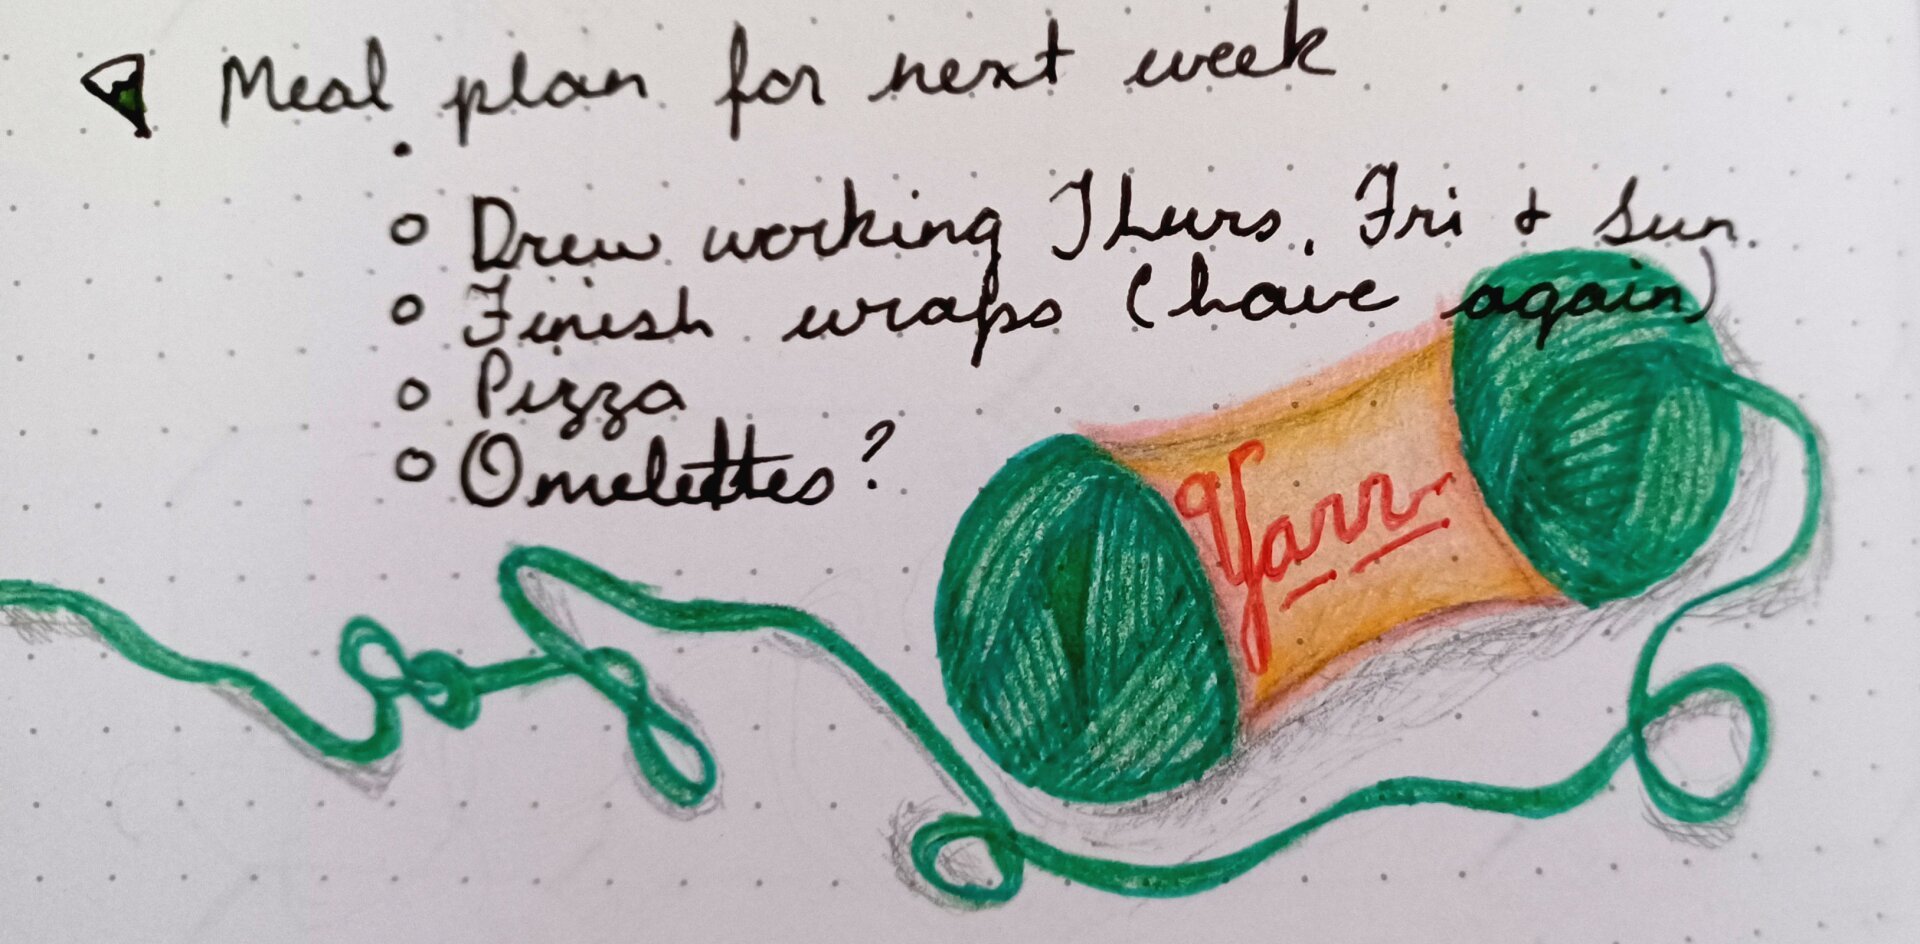 Meal plan for next week
Drew working Thurs, Fri & Sun.
Finish wraps (have again)
Pizza
Omelettes?
Yarn